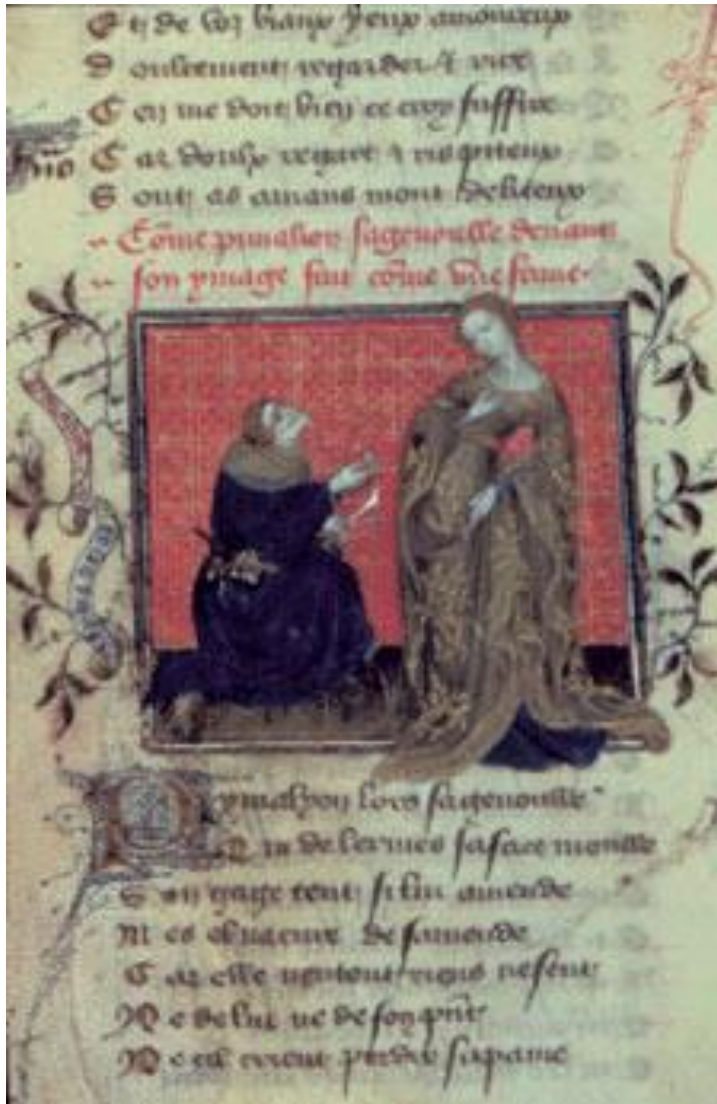 Et de voz biaux yeux amoureux
Doulcement regarder et rire
Ce me doit bien ce croy suffire
Car doulx regart et ris piteux
Sont as amans mont deliteux
Come pimalion sagenoulle devant
son ymage faite come une fame
Pymalyon lors sagenoulle
Qui de lermes sa face moulle
Son gage tent si lui amende
Mes el na cure de samende
Car elle nentent riens ne sent
Ne de lui ne de son
Ne cil crient perdre sa paine